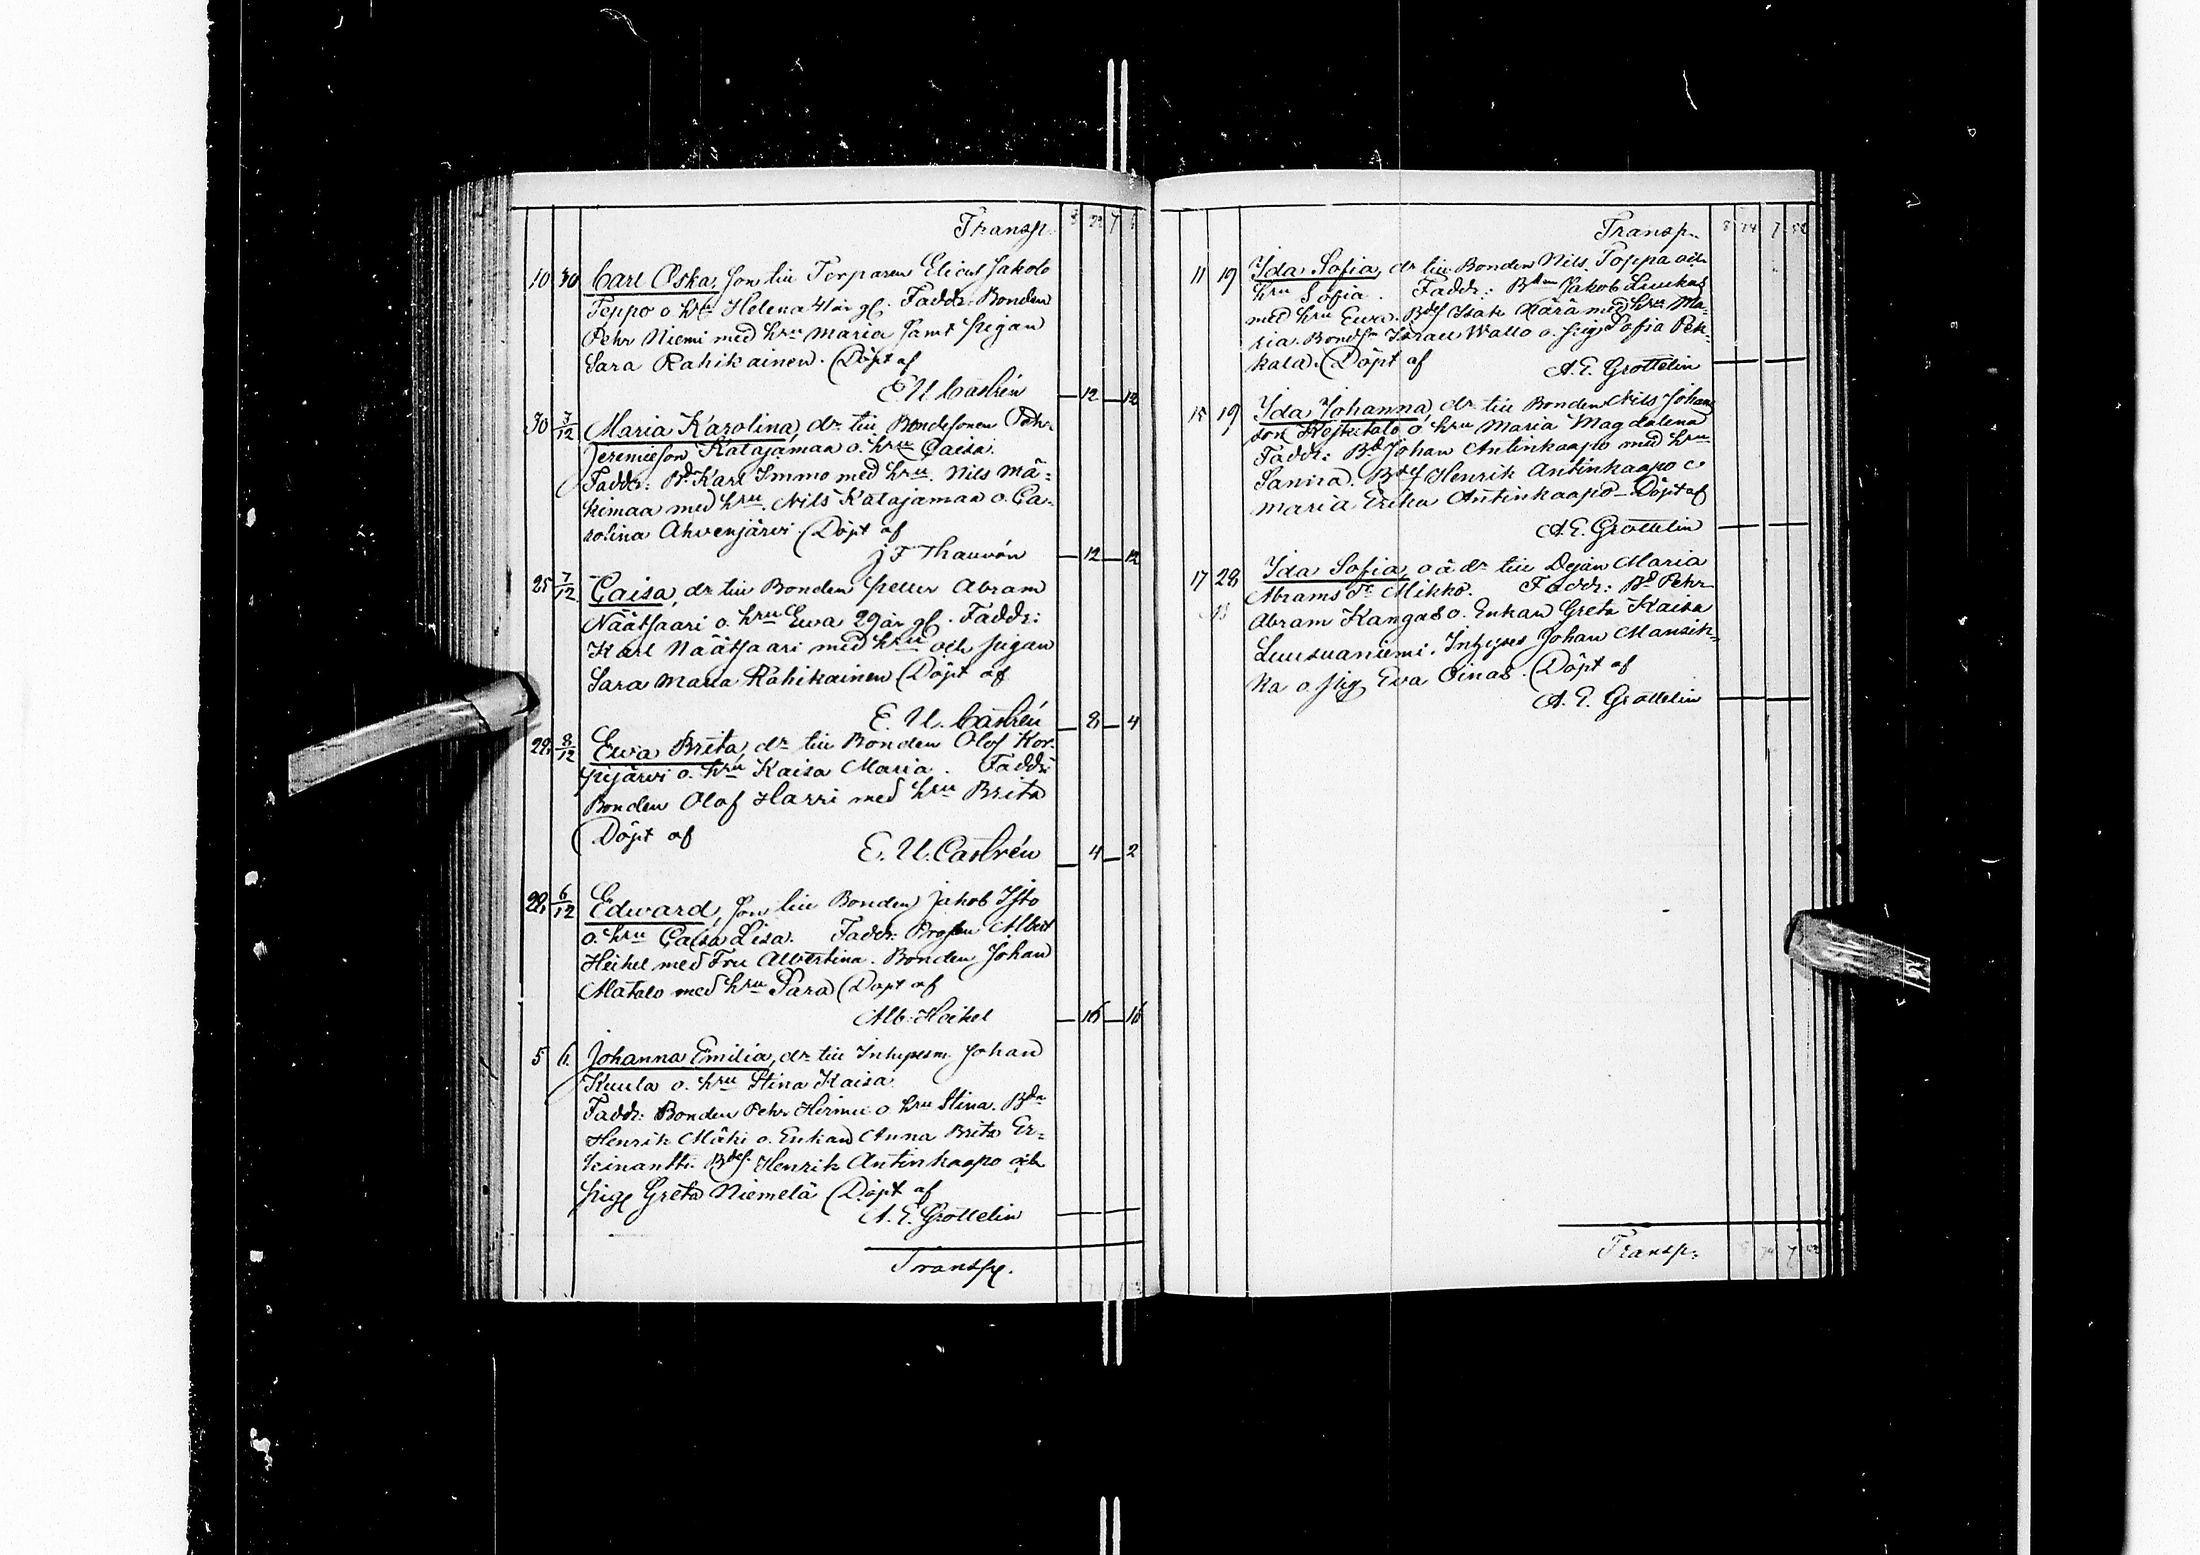 Transp.
10 30 Carl Oskar, son till Torparen Elicus Jakob
Teppo o. hru Helena 41 år gl. Faddr: Bonden
Pehr Niemi med hru Maria samt pigan
Sara Rahikainen. (Döpt af
E U Castrén — 12 — 12
30 7/12 Maria Karolina, dr till Bondesonen Pehr
Jeremiæson Katajamaa o. hru Caisa.
Faddr: Bd Karl Immo med hru. Nils Mä-
kimaa med hru. Nils Katajamaa o. Ca-
rolina Ahvenjärvi (Döpt af
J F Thauvón — 12 — 12
25 7/12 Caisa, dr till Bonden Petter Abram
Näätsaari o. hru Ewa 29 år gl. Faddr:
Karl Näätsaari med hru och pigan
Sara Maria Rahikainen (Döpt af
E. U. Castrén — 8 — 4
29 8/12 Ewa Brita, dr till Bonden Olof Kor-
pijärvi o. hru Kaisa Maria. Faddr:
Bonden Olof Harri med hru Brita
(Döpt af
E. U. Castrén — 4 — 2
22 6/12 Edward, son till Bonden Jakob Isto
o. hru Caisa Lisa. Faddr: Prosten Albert
Heikel med Fru Albertina. Bonden Johan
Matalo med hru Sara (Döpt af
Alb: Heikel — 16 — 16
5 6 Johanna Emilia, dr till Inhysesm. Johan
Kuula o. hru Stina Kaisa.
Faddr: Bonden Pehr Hirmu o hru Stina. Bdn
Henrik Mäki o. Enkan Anna Brita Er-
kinantti. Bdes. Henrik Antinkaapo och
pig Greta Niemelä (Döpt af
A. E. Grottelin
Transp.
Transp.
11 19 Ida Sofia, dr till Bonden Nils Poppa och
hru Sofia. Faddr: Jakob Liukas
med hru Ewa. Bdes Isak Kärä med hru Ma-
ria. Israel Wallo o. pig. Sofia Pek-
kala. (Döpt af
A. E. Grottelin
15 19 Ida Johanna, dr till Bonden Nils Johans
son o hru Maria Magdalena
Faddr: Bd Johan Antinkaapo med hru
Sanna. Bdes Henrik Antinkaapo o
Maria Erika Antinkaapo – Döpt af
A. E. Grottelin
17 28 Ida Sofia, o ä dr till Dejan Maria
Abrams Dr Mikko. Faddr: Bd Pehr
Abram Kangas o. Enkan Greta Kaisa
Luusuaniemi. Inhyses Johan Mansik-
ka o pig Eva Oinas. (Döpt af
A. E. Grottelin
Transp.